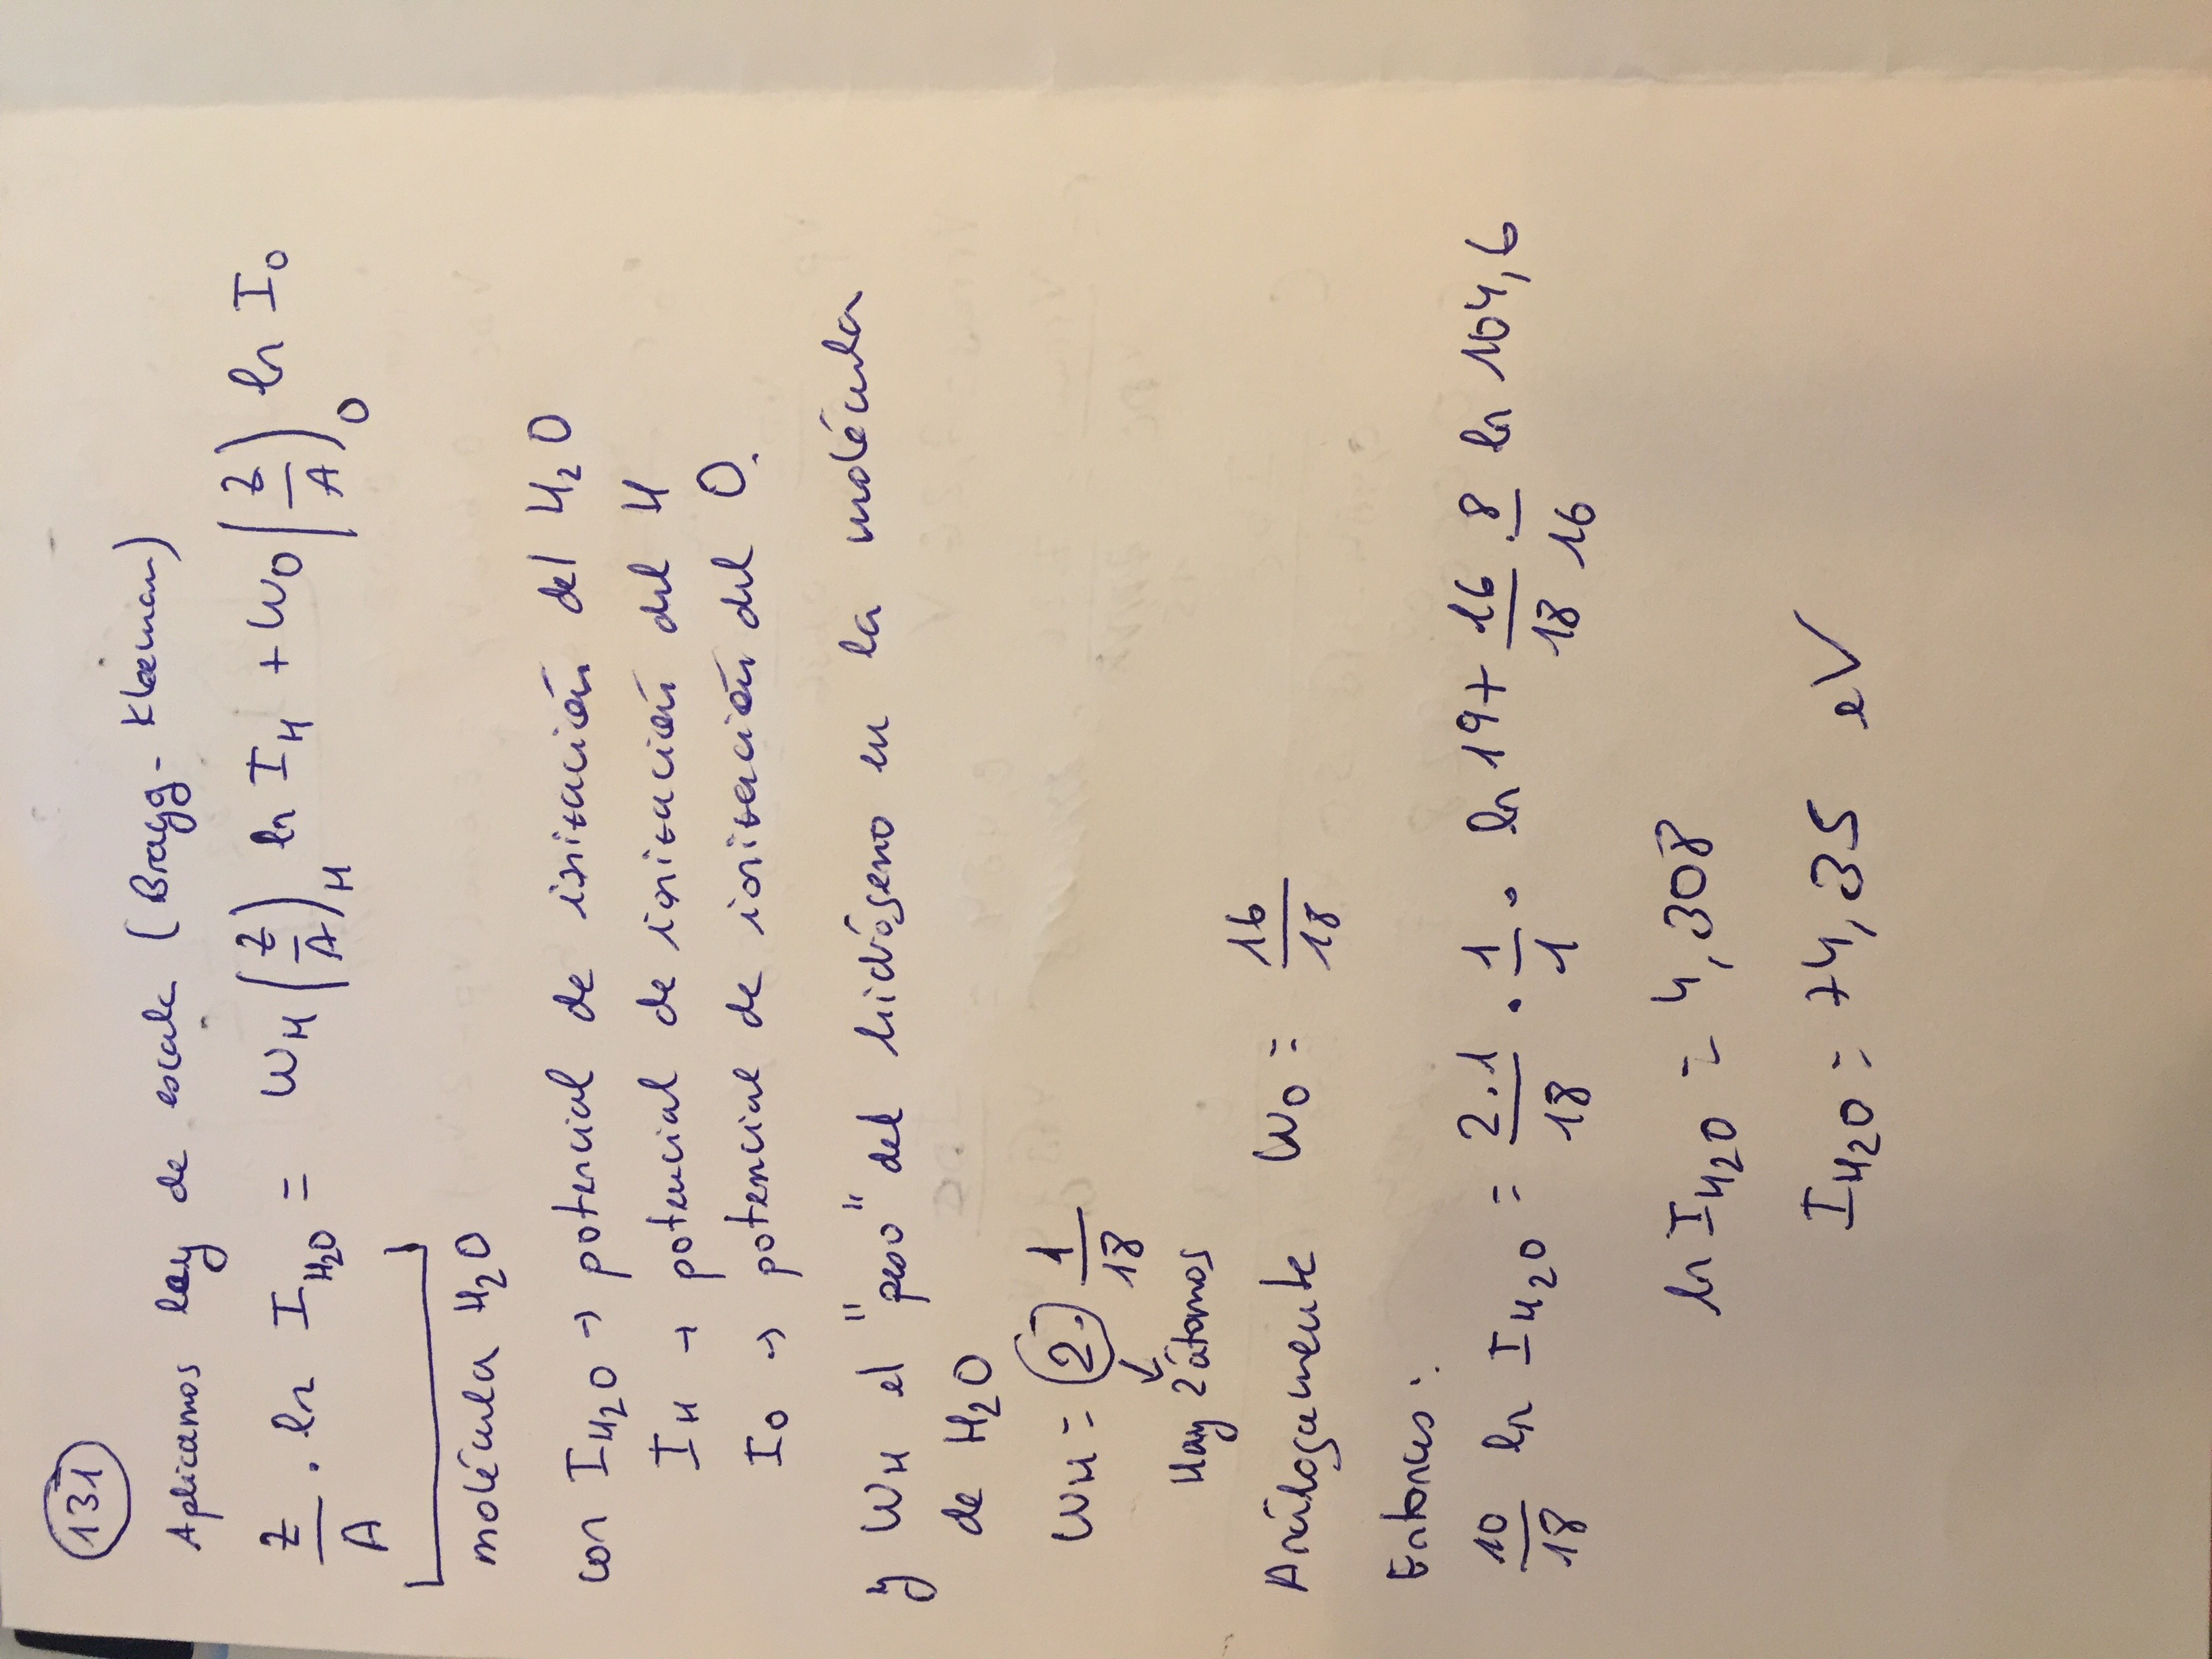 131
Aplicamos ley de escala (Bragg-Kleeman)
Z/A · ln I_H2O = W_H (Z/A)_H ln I_H + W_O (Z/A)_O ln I_O
molécula H2O
con I_H2O → potencial de ionización del H2O
I_H → potencial de ionización del H
I_O → potencial de ionización del O.
y W_H el "peso" del hidrógeno en la molécula
de H2O
W_H = 2 · 1/18
Hay 2 átomos
Análogamente W_O = 16/18
Entonces:
10/18 ln I_H2O = 2·1/18 · 1/1 · ln 19 + 16/18 · 8/16 ln 104,6
ln I_H2O = 4,308
I_H2O = 74,35 eV